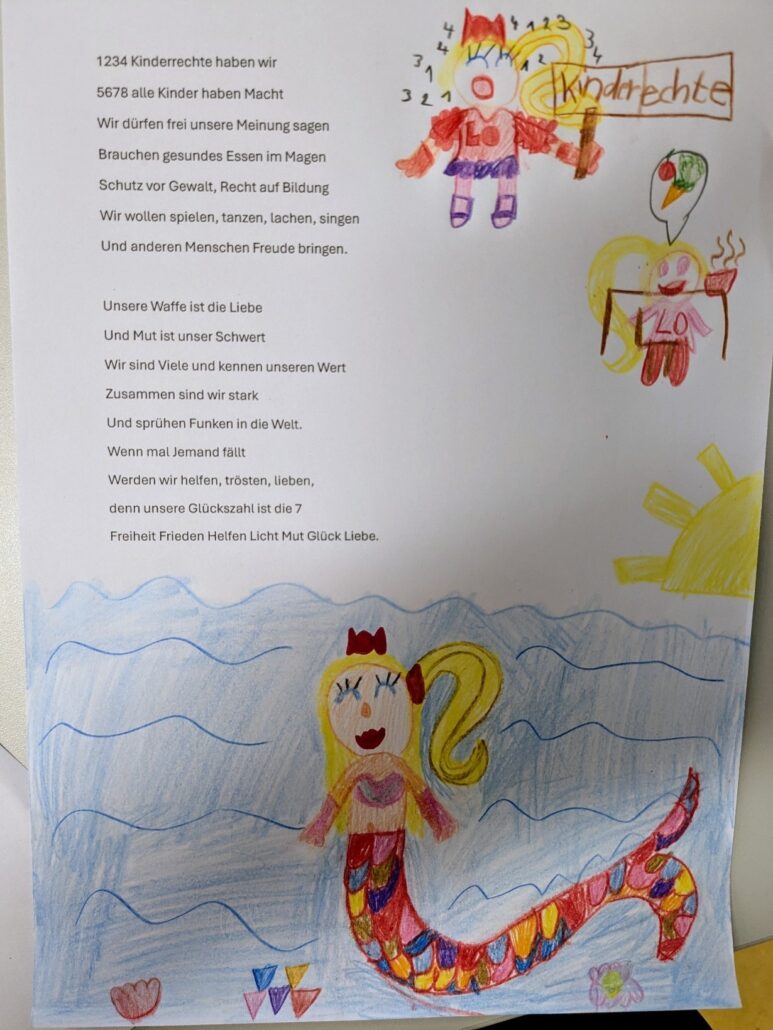 1234 Kinderrechte haben wir
5678 alle Kinder haben Macht
Wir dürfen frei unsere Meinung sagen
Brauchen gesundes Essen im Magen
Schutz vor Gewalt, Recht auf Bildung
Wir wollen spielen, tanzen, lachen, singen
Und anderen Menschen Freude bringen.
Unsere Waffe ist die Liebe
Und Mut ist unser Schwert
Wir sind Viele und kennen unseren Wert
Zusammen sind wir stark
Und sprühen Funken in die Welt.
Wenn mal Jemand fällt
Werden wir helfen, trösten, lieben,
denn unsere Glückszahl ist die 7
Freiheit Frieden Helfen Licht Mut Glück Liebe.
4 4 1 2 3 3 4
4 1 2
3 1
3 2 1
Kinderrechte
LO
LO